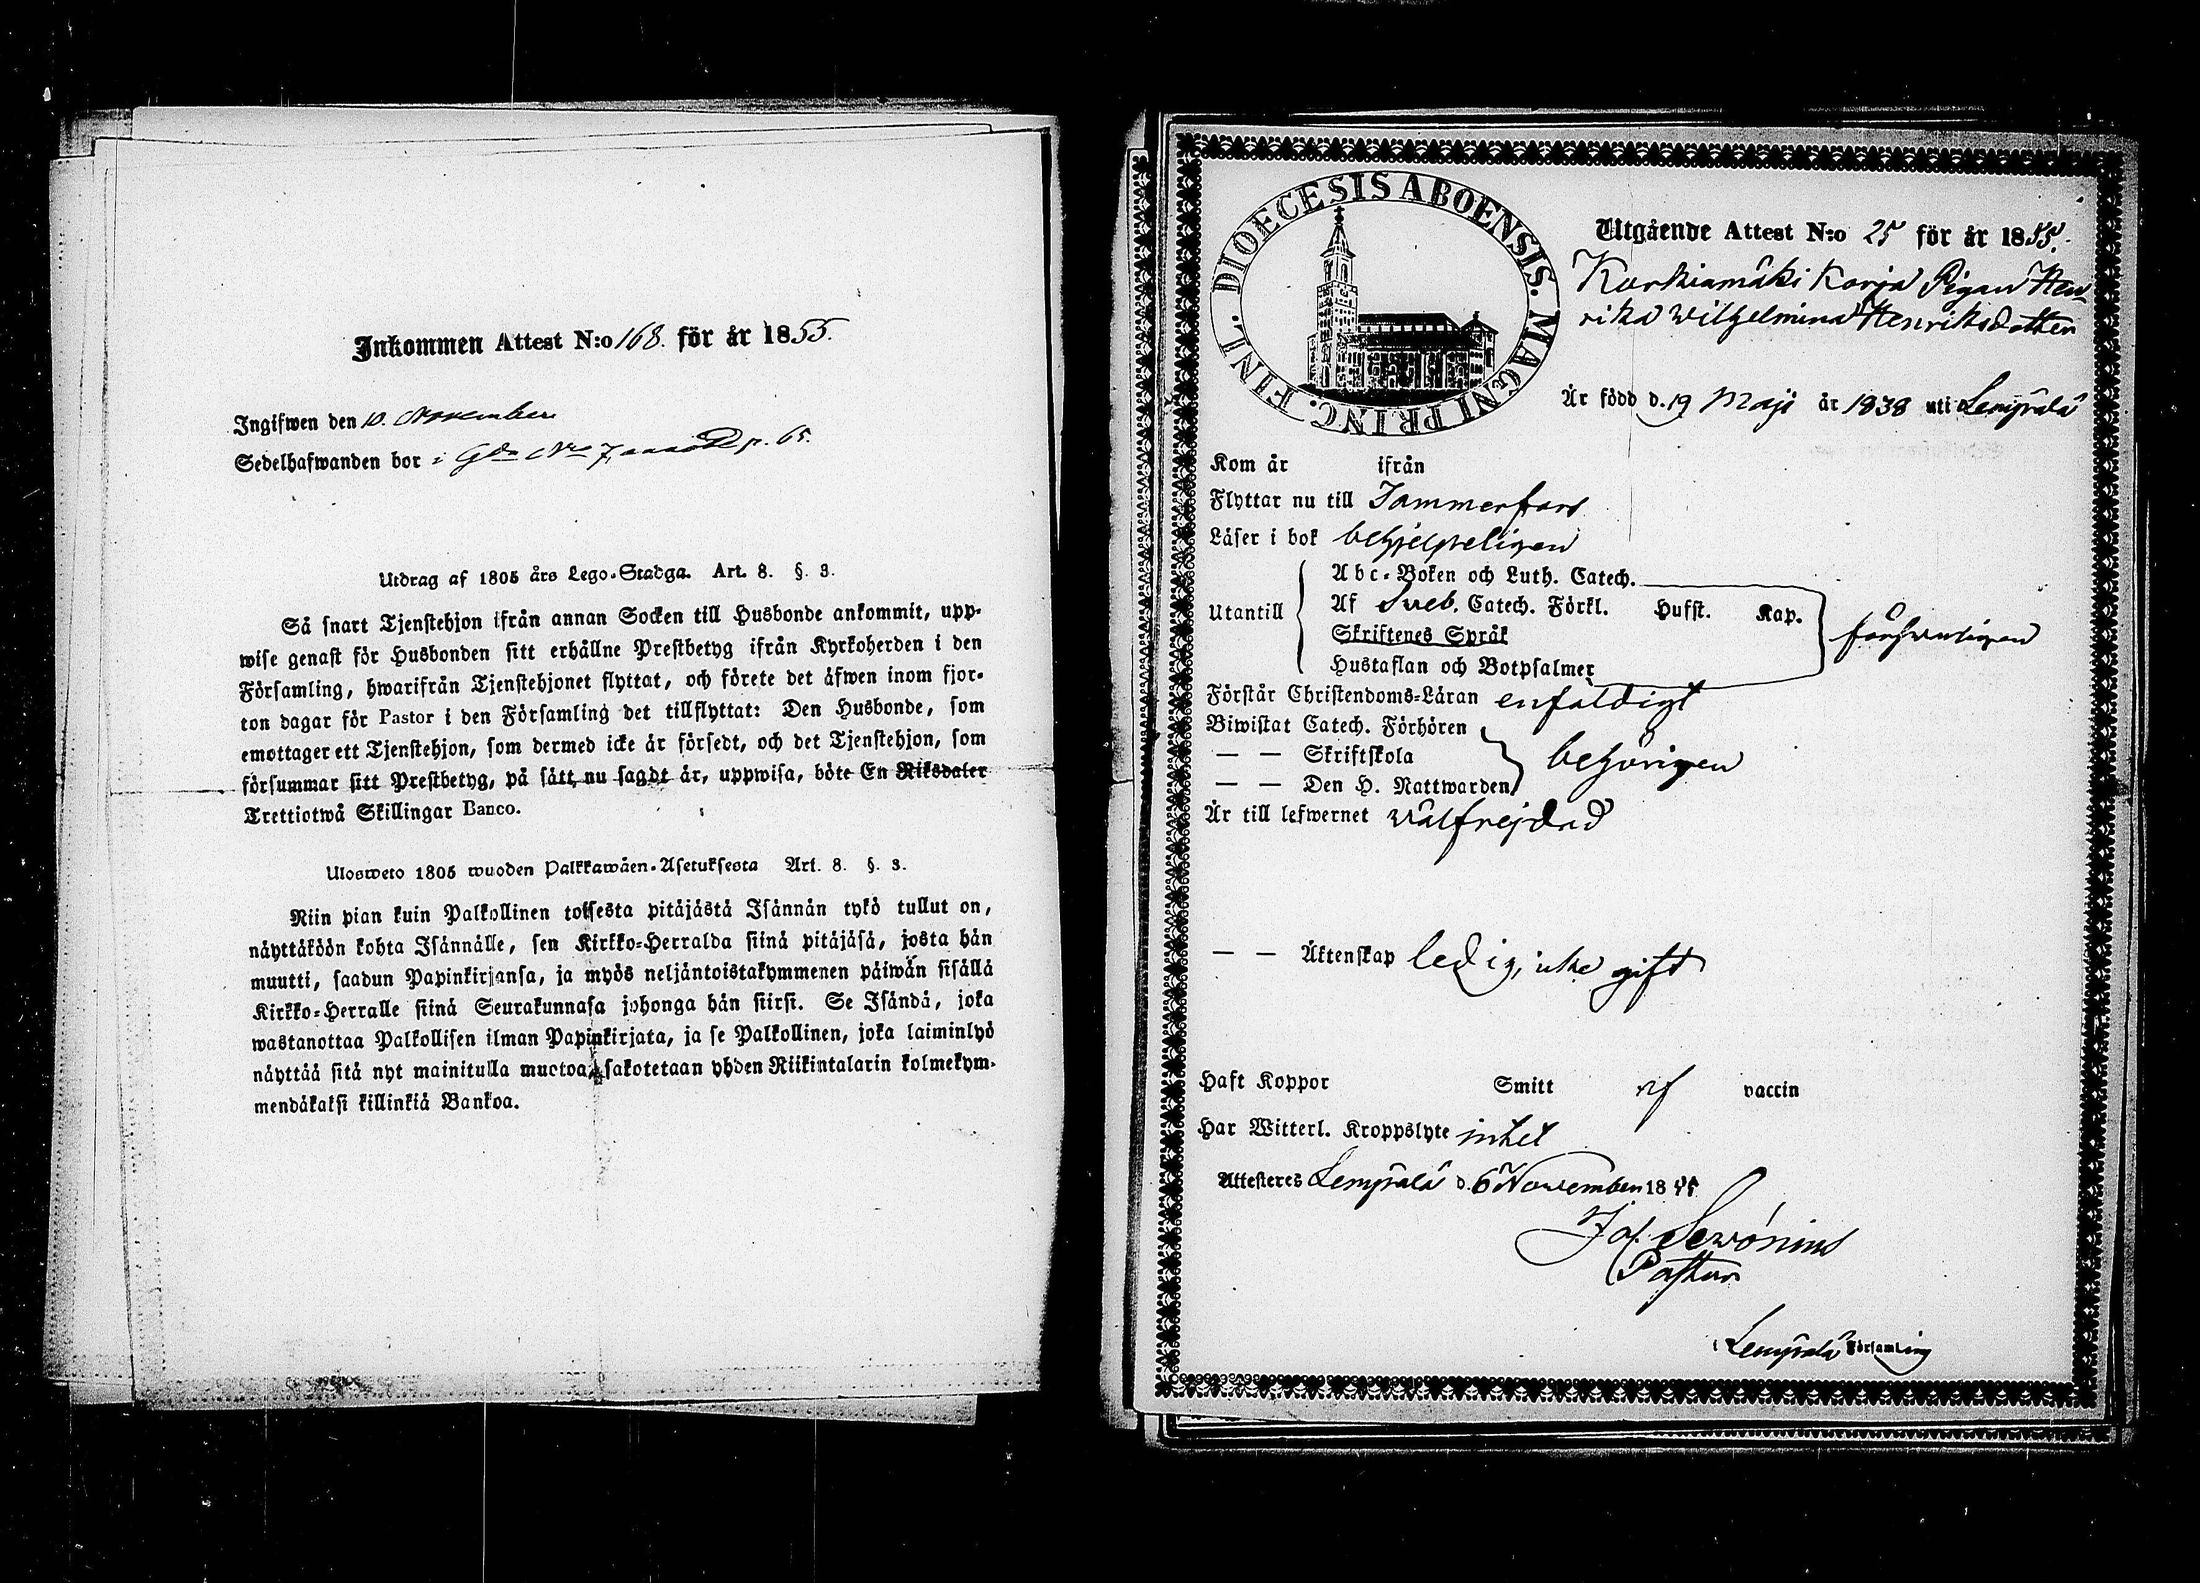 Inkommen Attest N:o 168. för år 1855.
Ingifwen den 10. November
Sedelhafwanden bor i Gdn No 7, p. 65.
Utdrag af 1805 års Lego-Stadga. Art. 8. §. 3.
Så snart Tjenstehjon ifrån annan Socken till Husbonde ankommit, upp-
wise genast för Husbonden sitt erhållne Prestbetyg ifrån Kyrkoherden i den
Församling, hwarifrån Tjenstehjonet flyttat, och förete det äfwen inom fjor-
ton dagar för Pastor i den Församling det tillflyttat: Den Husbonde, som
emottager ett Tjenstehjon, som dermed icke är försedt, och det Tjenstehjon, som
försummar sitt Prestbetyg, på sätt nu sagdt är, uppwisa, böte En Riksdaler
Trettiotwå Skillingar Banco.
Ulosweto 1805 wuoden Palkkawäen-Asetuksesta Art. 8. §. 3.
Niin pian kuin Palkollinen toisesta pitäjästä Isännän tykö tullut on,
näyttäköön kohta Isännälle, sen Kirkko-Herralda siinä pitäjäsä, josta hän
muutti, saadun Papinkirjansa, ja myös neljäntoistakymmenen päiwän sisällä
Kirkko-Herralle siinä Seurakunnasa johonga hän siirsi. Se Isändä, joka
wastanottaa Palkollisen ilman Papinkirjata, ja se Palkollinen, joka laiminlyö
näyttää sitä nyt mainitulla muotoa, sakotetaan yhden Riikintalarin kolmekym-
mendäkaksi killinkiä Bankoa.
DIOECESIS ABOENSIS. MAGNI PRINC. FINL.
Utgående Attest N:o 25 för år 1855.
Korkiamäki Korja Pigan Hen-
rika Wilhelmina Henriksdotter
Är född d. 19 Maji år 1838 uti Lempälä
Kom år ifrån
Flyttar nu till Tammerfors
Läser i bok behjelpeligen
Utantill
Abc-Boken och Luth. Catech.
Af Sveb. Catech. Förkl. Hufst. Kap.
Skriftenes Språk
Hustaflan och Botpsalmer
försvarligen
Förstår Christendoms-Läran enfaldigt
Biwistat Catech. Förhören
— — Skriftskola
— — Den H. Nattwarden
behörigen
Är till lefwernet wälfrejdad
— — Äktenskap ledig, icke gift
Haft Koppor Smitt af vaccin
Har Witterl. Kroppslyte intet
Attesteres Lempälä d. 6 November 1855
Jos. Serónius
Pastor
i Lempälä Församling